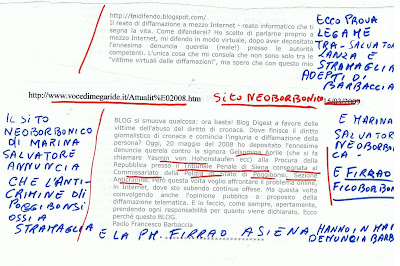 http://ipdifendo.blogspot.com/
Il reato di diffamazione a mezzo Internet - reato informatico che ti
segna la vita. Come difendersi? Ho scelto di parlarne proprio a
mezzo Internet, mi difendo in modo virtuale, dopo aver depositato
l'ennesima denuncia querela (reale!) presso le autorità
competenti. L'unica cosa che mi consola che non sono solo tra le
"vittime virtuali delle diffamazioni", ma spero che con questo mio
ECCO PROVA
LEGAME
TRA-SALVATORE
LANZA E
STRAMAGLIA
ADEPTI DI
BARBACCIA
http://www.vocedimegaride.it/Attualit%E02008.htm SITO NEOBORBONICO 15/03/2009
IL SITO
NEOBORBONICO
DI MARINA
SALVATORE
ANNUNCIA
CHE L'ANTI-
CRIMINE DI
POGGIBONSI
OSSIA
STRAMAGLIA
BLOG si smuova qualcosa: ora basta! Blog Digest a favore delle
vittime dell'abuso del diritto di cronaca. Dove finisce il diritto
giornalistico di cronaca e comincia l'ingiuria o diffamazione della
persona? Oggi, 20 maggio del 2008 ho depositato l'ennesima
denuncia querela contro la signora Gelsomino Aprile (che si fa
chiamare Yasmin von Hohenstaufen ecc) alla Procura della
Repubblica presso il Tribunale Penale di Siena consegnata al
Commissariato della Polizia di Stato di Poggibonsi, Sezione
Anticrimine. Pero questa volta voglio affrontare il problema online,
in Internet, dove sto subendo continue offese. Ma questa volta
coinvolgendo anche l'opinione pubblica a proposito della
diffamazione telematica. E lo faccio, come sempre, apertamente,
prendendo ogni responsabilità per quanto viene dichiarato. Ecco
perché questo BLOG.
Paolo Francesco Barbaccia
E MARINA
SALVATORE
NEOBORBONI
CA-
E FIRRAO
FILOBORBON
E LA PM. FIRRAO A SIENA, HANNO IN MA
DENUNCIA BARB